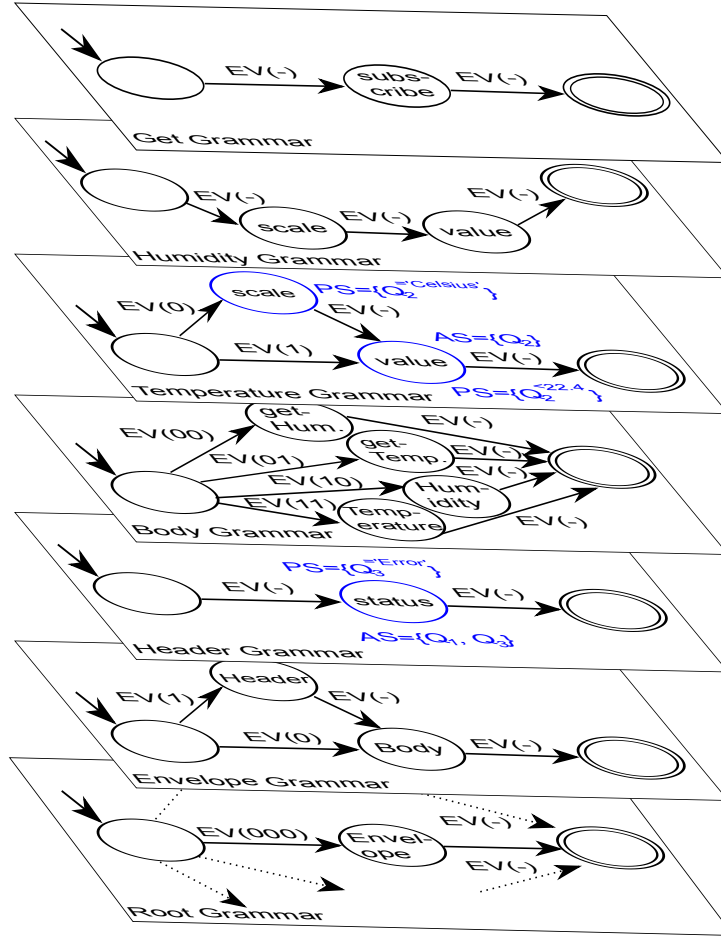 EV(-)
subs-
cribe
EV(-)
Get Grammar
EV(-)
scale
EV(-)
value
EV(-)
Humidity Grammar
EV(0)
scale
PS={Q2='Celsius'}
EV(-)
AS={Q2}
EV(1)
value
EV(-)
PS={Q2<22.4}
Temperature Grammar
get-
Hum.
EV(-)
EV(00)
get-
Temp.
EV(-)
EV(01)
EV(10)
Hum-
idity
EV(-)
EV(11)
Temp-
erature
EV(-)
Body Grammar
PS={Q3='Error'}
EV(-)
status
EV(-)
AS={Q1, Q3}
Header Grammar
Header
EV(1)
EV(-)
EV(0)
Body
EV(-)
Envelope Grammar
EV(000)
Envel-
ope
EV(-)
EV(-)
Root Grammar